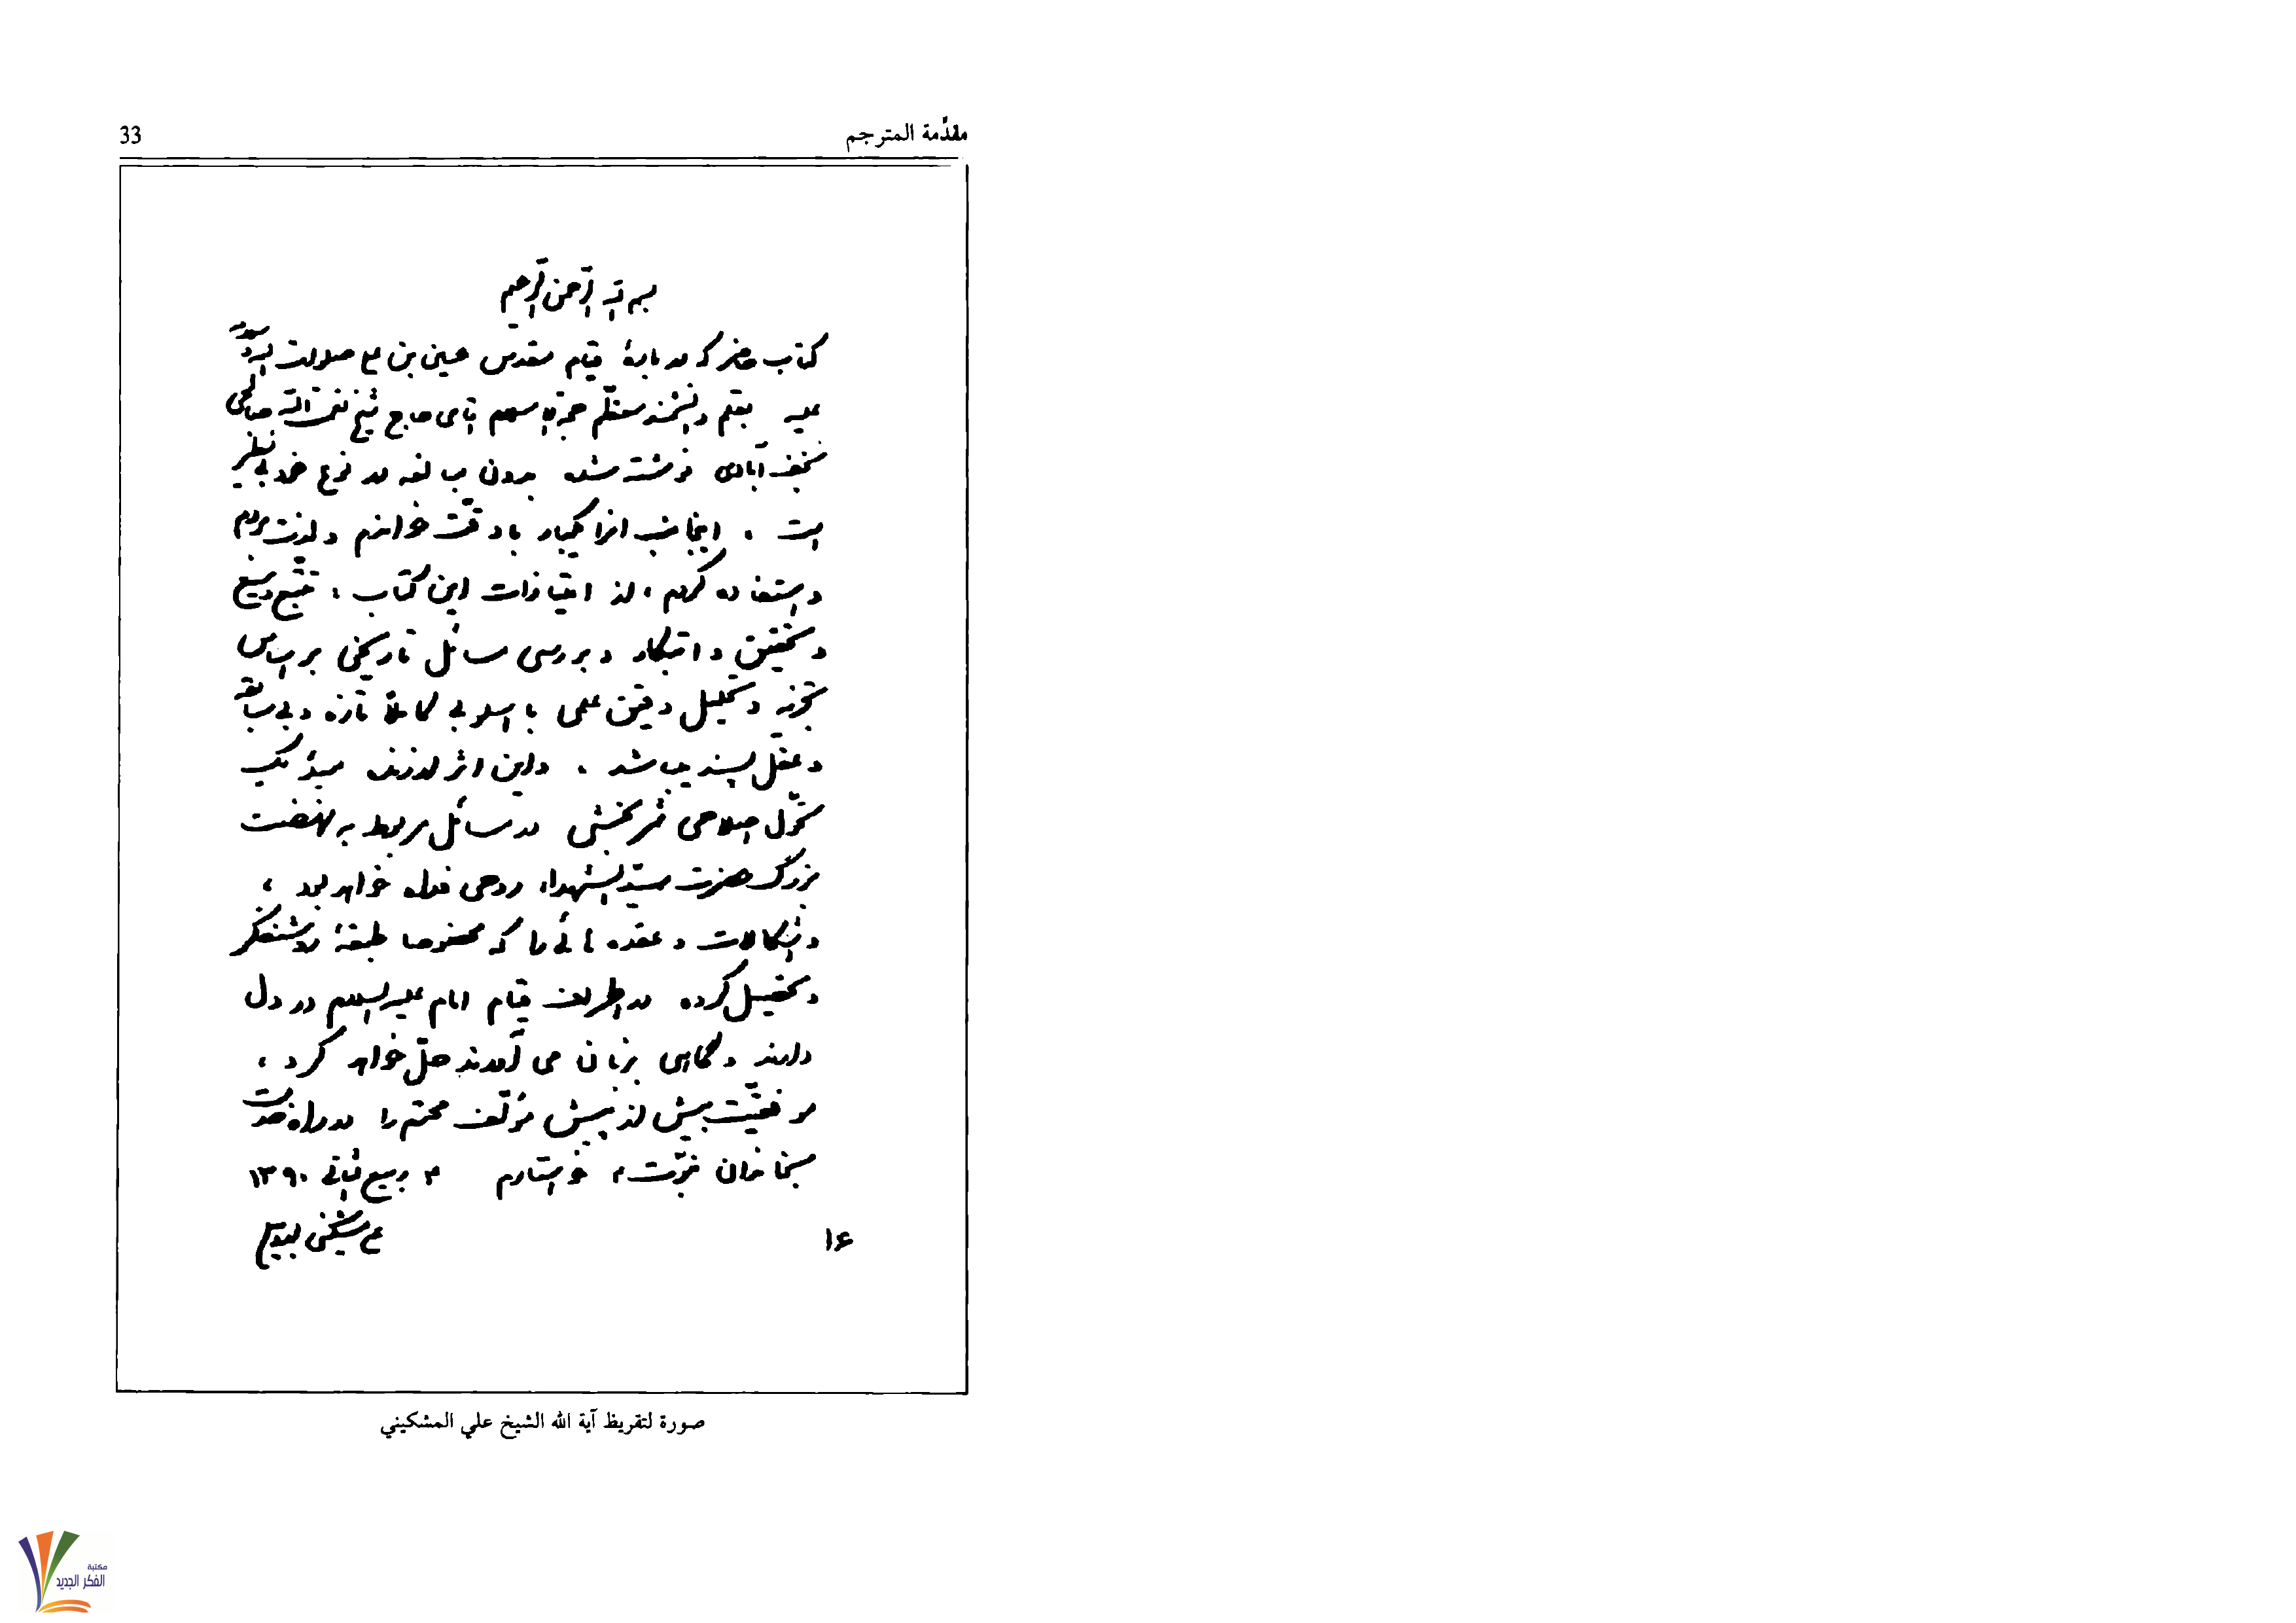 مقدَّمة المترجم
33
بسم الله الرّحمن الرّحيم
کتاب حاضر که در بارهٔ قیام مقدس حسین بن علی صلوات الله و سلامه
علیه بقلم دانشمند معظّم حجة الاسلام آقای حاج شیخ نعمت الله صالحی
نجف آبادی نوشته شده بدون مبالغه در نوع خود بی نظیر
است ، اینجانب آنرا یکبار با دقّت خواندم و لذت بردم
و استفاده کردم ، از امتیازات این کتاب ، تتبّع وسیع
و تحقیق و ابتکار و بررسی مسائل تاریخی بر اساس
تجزیه و تحلیل دقیق علمی با اسلوبی کاملاً تازه و بی سابقه
و عقل پسند میباشد . و این اثر ارزنده مبدأ یک
تحوّل اصلاحی ثمربخشی در مسائل مربوط به نهضت
بزرگ حضرت سیّد الشهداء روحی فداه خواهد بود ،
و اشکالات و عقده هائی را که مخصوصا طبقهٔ روشنفکر
و تحصیل کرده در اطراف قیام امام علیه السلام در دل
دارند و گاهی بزبان می آورند حلّ خواهد کرد ،
موفقیّت بیش از پیش مؤلّف محترم را در راه خدمت
بخاندان نبوّت خواستارم ۳ ربیع الثانی ۱۳۹۰
علی مشکینی اردبیلی
۱۶
صورة لتقريظ آية الله الشيخ علي المشكيني
مكتبة
الفكر الجديد